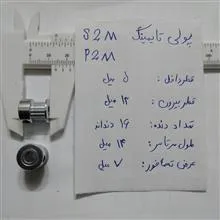 پولی تایمینگ S2M
P2M
قطر داخل: ۵ میل
قطر بیرون: ۱۲ میل
تعداد دنده: ۱۶ دندانه
طول سرتاسر: ۱۴ میل
عرض تسمه خور: ۷ میل